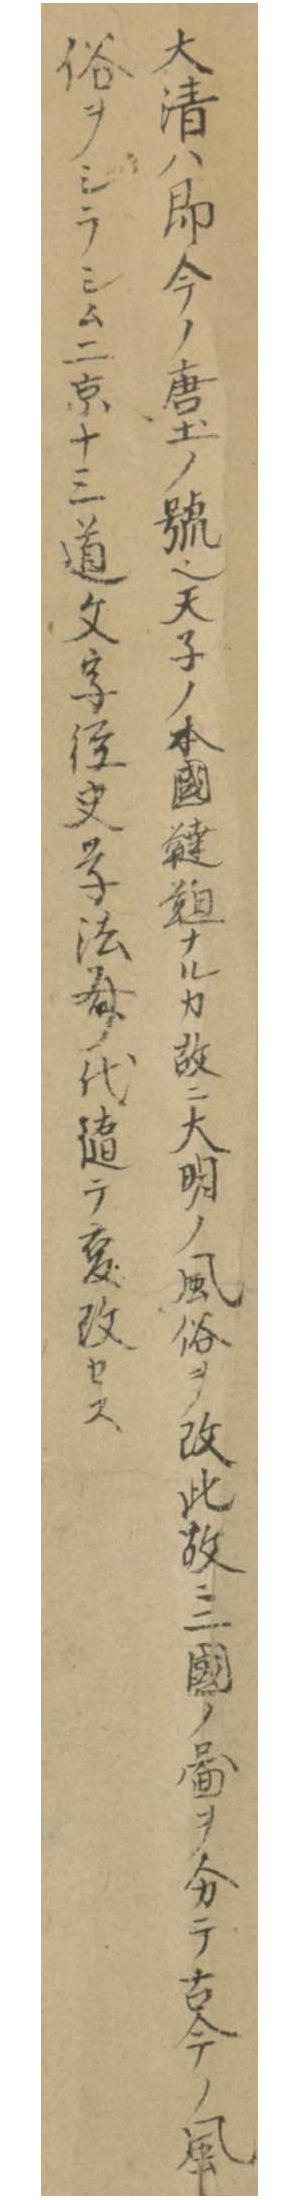 大清ハ即今ノ唐土ノ號也天子ノ本國韃靼ナルカ故ニ大明ノ風俗ヲ改此故ニ二國ノ啚ヲ分テ古今ノ風
俗ヲシラシム二京十三道文字経史学法等ノ代違テ変改セス